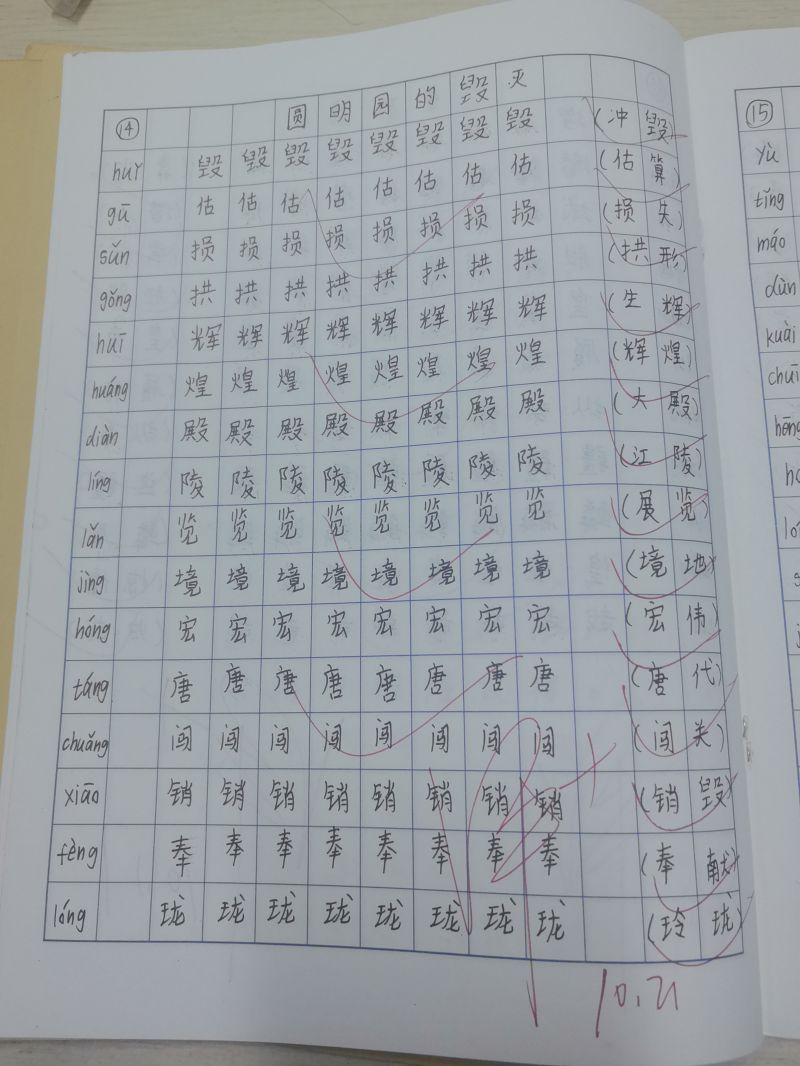 ⑭ 圆明园的毁灭
huǐ 毁 毁 毁 毁 毁 毁 毁 毁 (冲毁)
gū 估 估 估 估 估 估 估 估 (估算)
sǔn 损 损 损 损 损 损 损 损 (损失)
gǒng 拱 拱 拱 拱 拱 拱 拱 拱 (拱形)
huī 辉 辉 辉 辉 辉 辉 辉 辉 (生辉)
huáng 煌 煌 煌 煌 煌 煌 煌 煌 (辉煌)
diàn 殿 殿 殿 殿 殿 殿 殿 殿 (大殿)
líng 陵 陵 陵 陵 陵 陵 陵 陵 (江陵)
lǎn 览 览 览 览 览 览 览 览 (展览)
jìng 境 境 境 境 境 境 境 境 (境地)
hóng 宏 宏 宏 宏 宏 宏 宏 宏 (宏伟)
táng 唐 唐 唐 唐 唐 唐 唐 唐 (唐代)
chuǎng 闯 闯 闯 闯 闯 闯 闯 闯 (闯关)
xiāo 销 销 销 销 销 销 销 销 (销毁)
fèng 奉 奉 奉 奉 奉 奉 奉 奉 (奉献)
lóng 珑 珑 珑 珑 珑 珑 珑 珑 (玲珑)
10.21
⑮
yù
tíng
máo
dùn
kuài
chuī